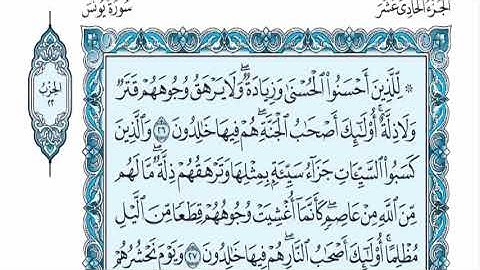 الجزء الحادى عشر
سورة يونس
الحزب
٢٢
* لِّلَّذِينَ أَحْسَنُوا۟ ٱلْحُسْنَىٰ وَزِيَادَةٌ ۖ وَلَا يَرْهَقُ وُجُوهَهُمْ قَتَرٌ
وَلَا ذِلَّةٌ ۚ أُو۟لَٰٓئِكَ أَصْحَٰبُ ٱلْجَنَّةِ ۖ هُمْ فِيهَا خَٰلِدُونَ ٢٦ وَٱلَّذِينَ
كَسَبُوا۟ ٱلسَّيِّـَٔاتِ جَزَآءُ سَيِّئَةٍۭ بِمِثْلِهَا وَتَرْهَقُهُمْ ذِلَّةٌ ۖ مَّا لَهُم
مِّنَ ٱللَّهِ مِنْ عَاصِمٍ ۖ كَأَنَّمَآ أُغْشِيَتْ وُجُوهُهُمْ قِطَعًا مِّنَ ٱلَّيْلِ
مُظْلِمًا ۚ أُو۟لَٰٓئِكَ أَصْحَٰبُ ٱلنَّارِ ۖ هُمْ فِيهَا خَٰلِدُونَ ٢٧ وَيَوْمَ نَحْشُرُهُمْ